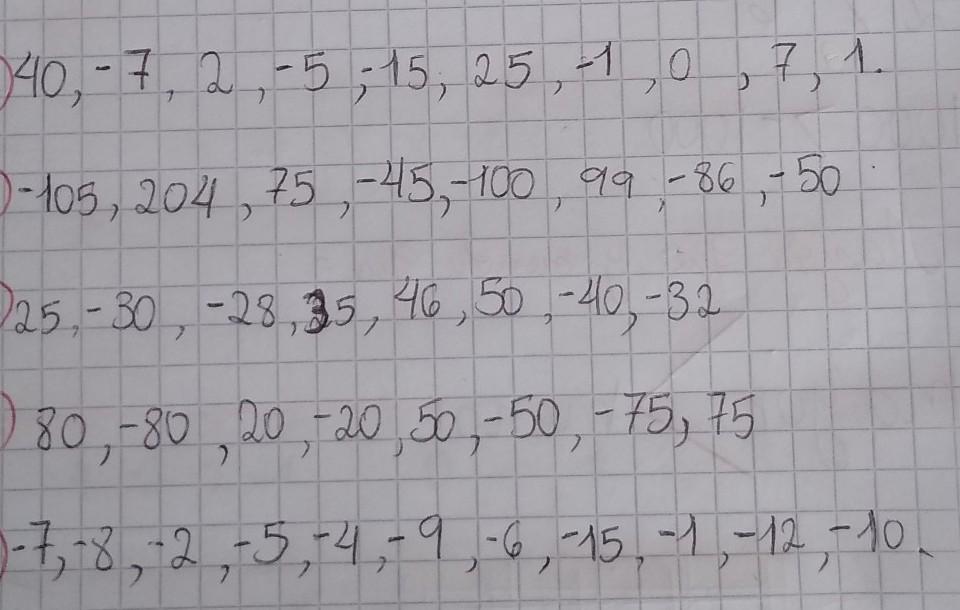 )40, -7, 2, -5, -15, 25, -1, 0, 7, 1.
)-105, 204, 75, -45, -100, 99, -86, -50
)25, -30, -28, 35, 46, 50, -40, -32
) 80, -80, 20, -20, 50, -50, -75, 75
)-7, -8, -2, -5, -4, -9, -6, -15, -1, -12, -10.